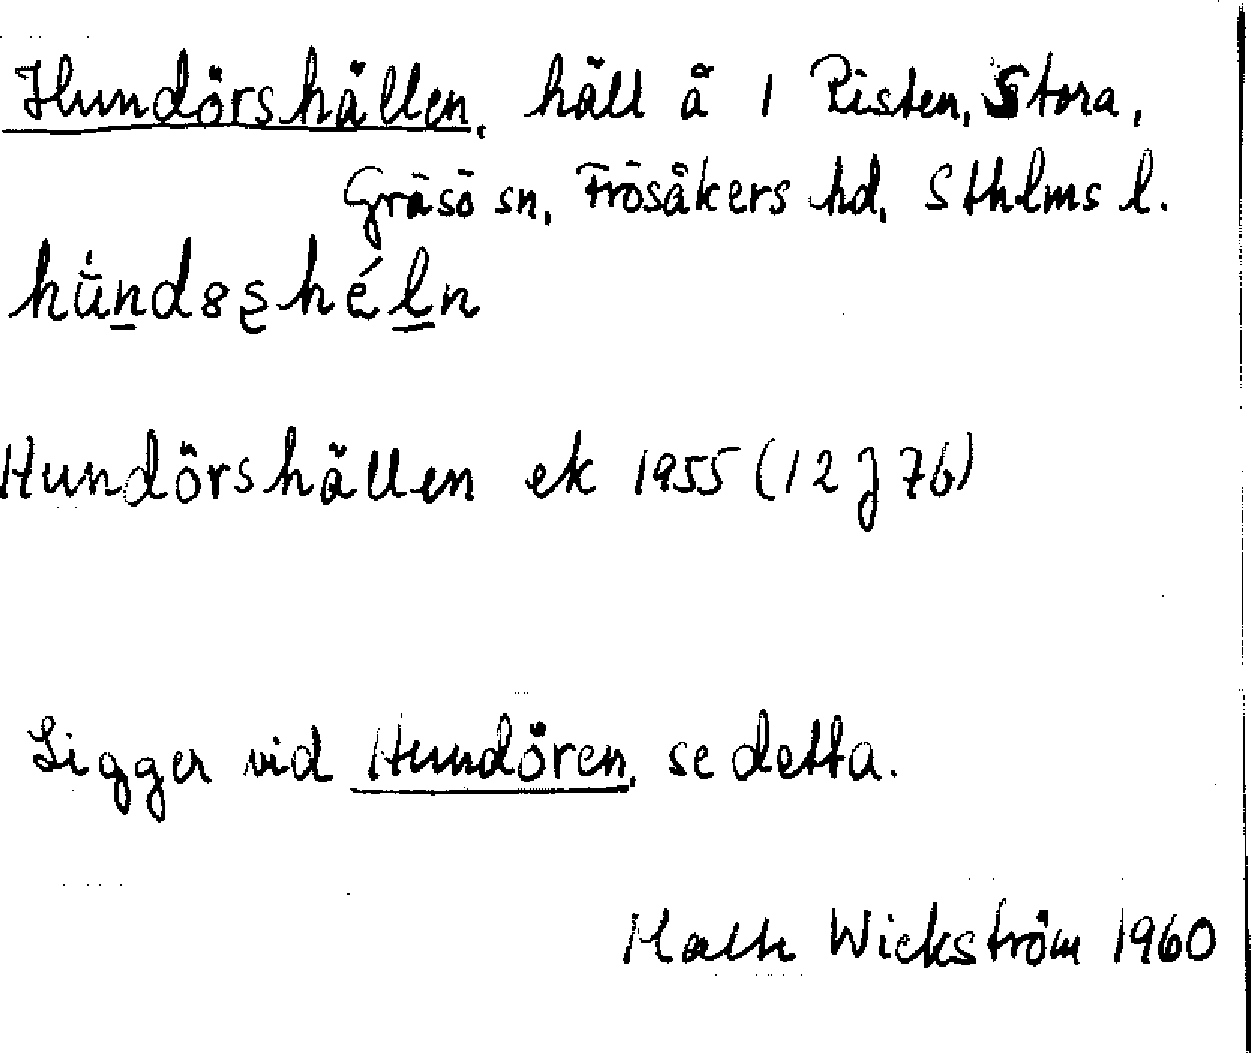 Hundörshällen, häll å 1 Risten, Stora,
Gräsö sn, Frösåkers hd, Sthlms l.
Hundörshällen ek 1955 (12 J 7b)
Ligger vid Hundören, se detta.
Wickström 1960